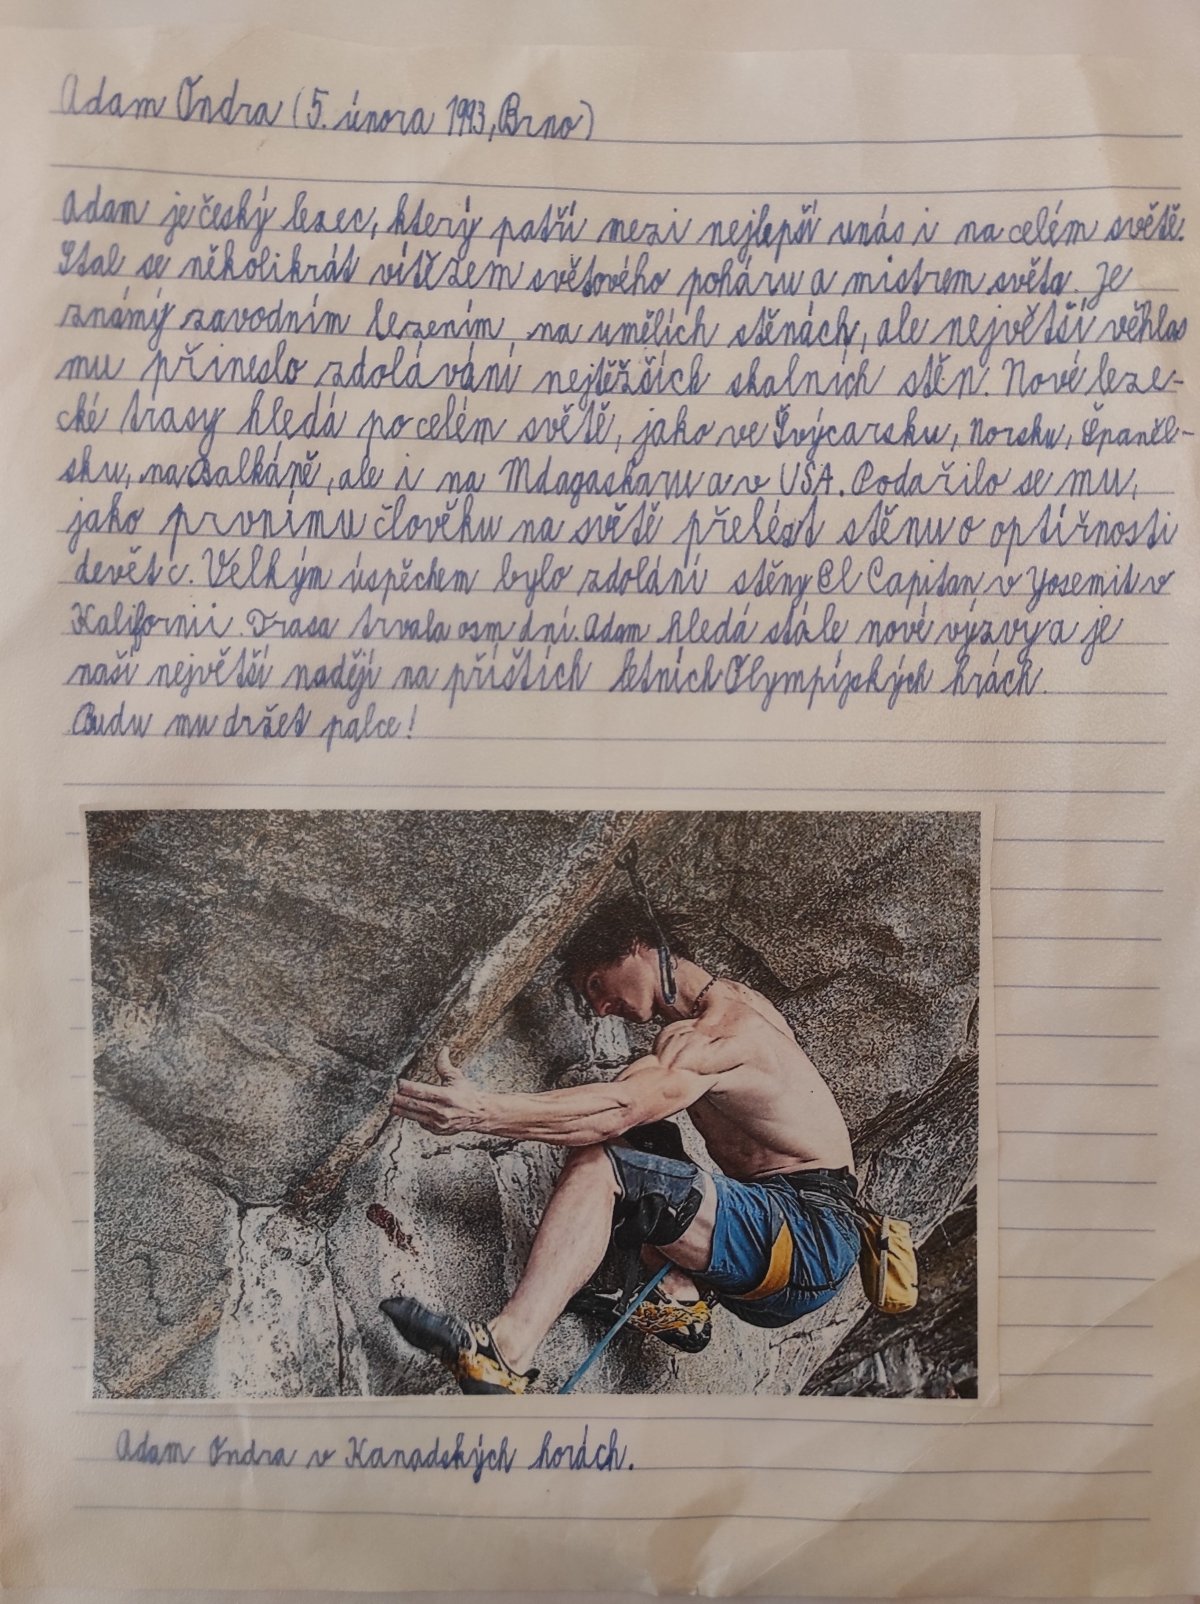 Adam Ondra (5. února 1993, Brno)
Adam je český lezec, který patří mezi nejlepší unás i na celém světě.
Stal se několikrát vítězem světového poháru a mistrem světa. Je
známý závodním lezením na umělích stěnách, ale největší věhlas
mu přineslo zdolávání nejtěžších skalních stěn. Nové leze-
cké trasy hledá po celém světě, jako ve Švýcarsku, Norsku, Španěl-
sku, na Balkáně, ale i na Mdagaskaru a v USA. Podařilo se mu,
jako prvnímu člověku na světě přelézt stěnu o optížnosti
devět c. Velkým úspěchem bylo zdolání stěny El Capitan v Yosemit v
Kalifornii. Trasa trvala osm dní. Adam hledá stále nové výzvy a je
naší největší nadějí na příštích letních Olympijských hrách.
Budu mu držet palce!
Adam Ondra v Kanadských horách.